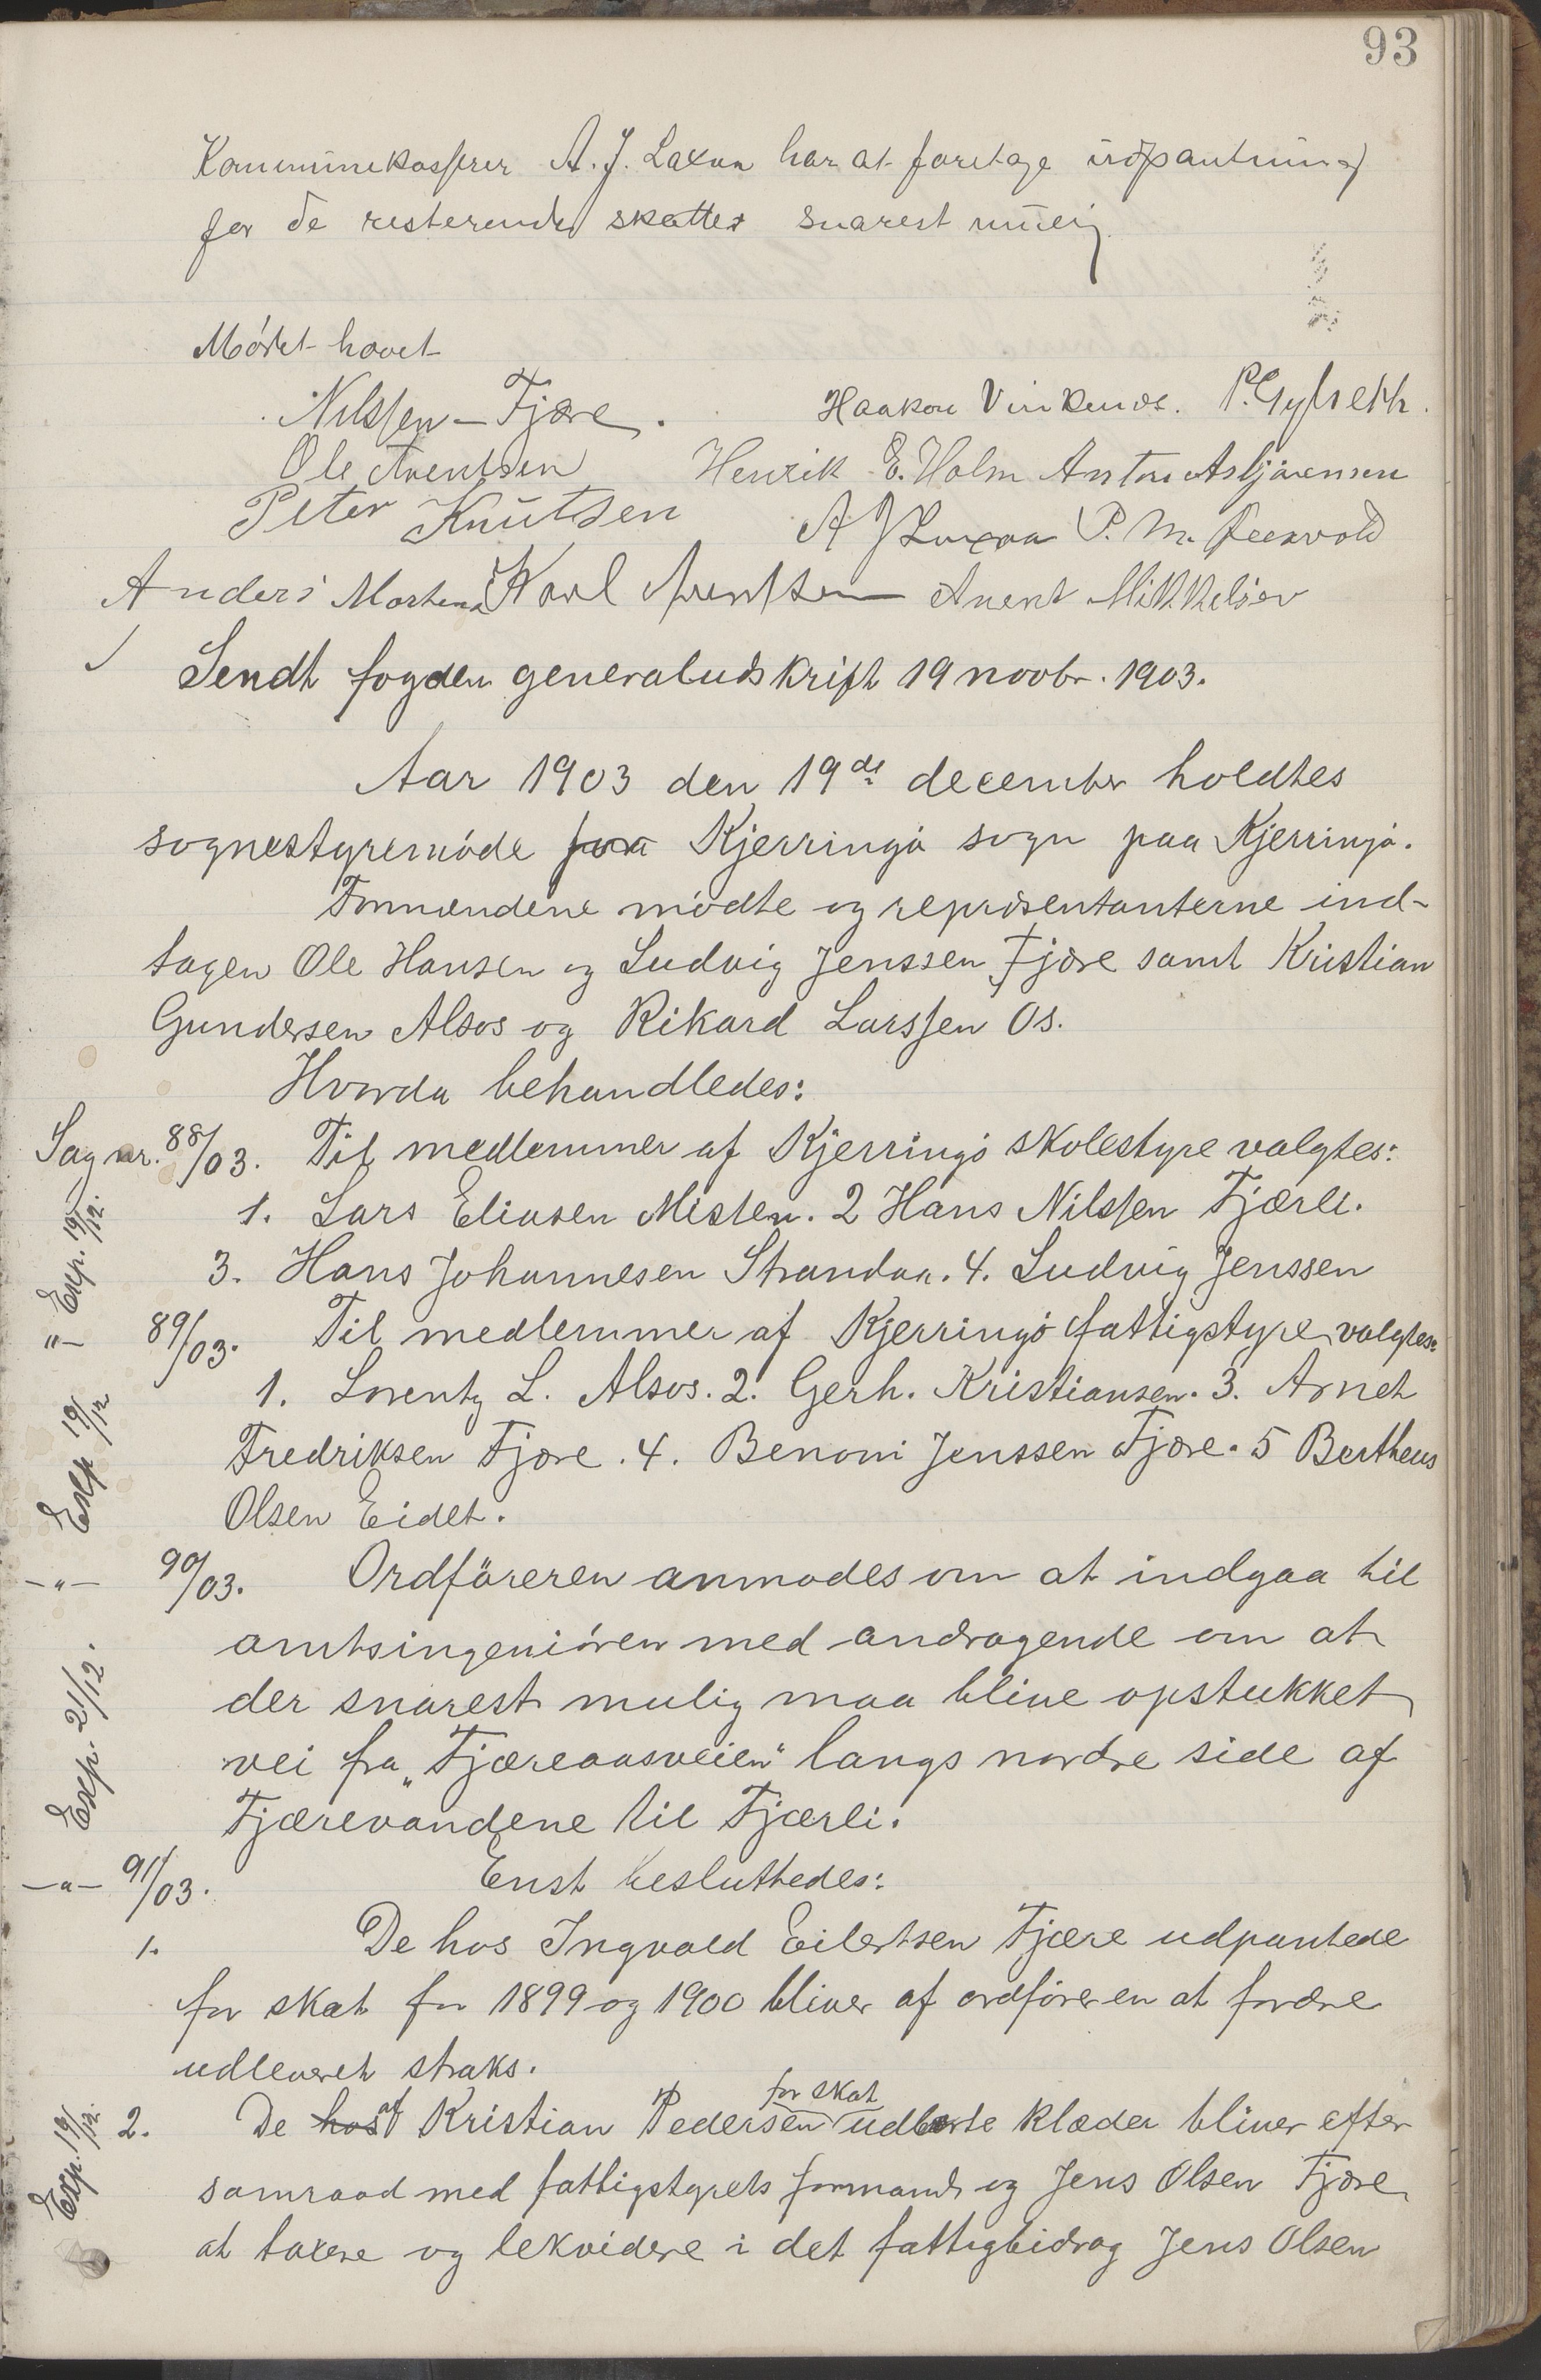 93
Kommunekasserer A. J. Laxaa har at foretage udpantning
for de resterende skatter snarest mulig
Mødet hævet
Nilssen - Fjære. Haakon
Ole Arentsen Henrik E. Holm Anton Asbjørnsen
Peter Knutsen A J Laxaa P. M.
Anders Mortens Karl Arentsen Arent Mikkelsen
Sendt fogden generaludskrift 19 novbr. 1903.
Aar 1903 den 19de december holdtes
sognestyremöde for Kjerringö sogn paa Kjerringö.
Formændene mødte og repræsentanterne ind-
tagen Ole Hansen og Ludvig Jenssen Fjære samt Kristian
Gundersen Alsos og Rikard Larssen Os.
Hvorda behandledes:
Sag nr. 88/03. Til medlemmer af Kjerringö skolestyre valgtes:
1. Lars Eliasen Misten. 2 Hans Nilssen Fjærli.
Exp. 19/12.
3. Hans Johannesen Strandaa. 4. Ludvig Jenssen
-"- 89/03. Til medlemmer af Kjerringö fattigstyre valgtes:
1. Lorentz L. Alsos. 2. Gerh. Kristiansen. 3. Arnet
Exp 19/12
Fredriksen Fjære. 4. Benoni Jenssen Fjære. 5 Bertheus
Olsen Eidet.
-"- 90/03. Ordföreren anmodes om at indgaa til
amtsingeniören med andragende om at
Exp. 21/12.
der snarest mulig maa blive opstukket
vei fra „Fjæreaasveien" langs nordre side af
Fjærevandene til Fjærli.
-"- 91/03. Enst besluttedes:
1. De hos Ingvald Eilertsen Fjære udpantede
for skat for 1899 og 1900 bliver af ordföreren at fordre
udleveret straks.
for skat
2. De hos af Kristian Pedersen udborte klæder bliver efter
Exp. 19/12.
samraad med fattigstyrets formand og Jens Olsen Fjære
at taxere og lekvidere i det fattigbidrag Jens Olsen